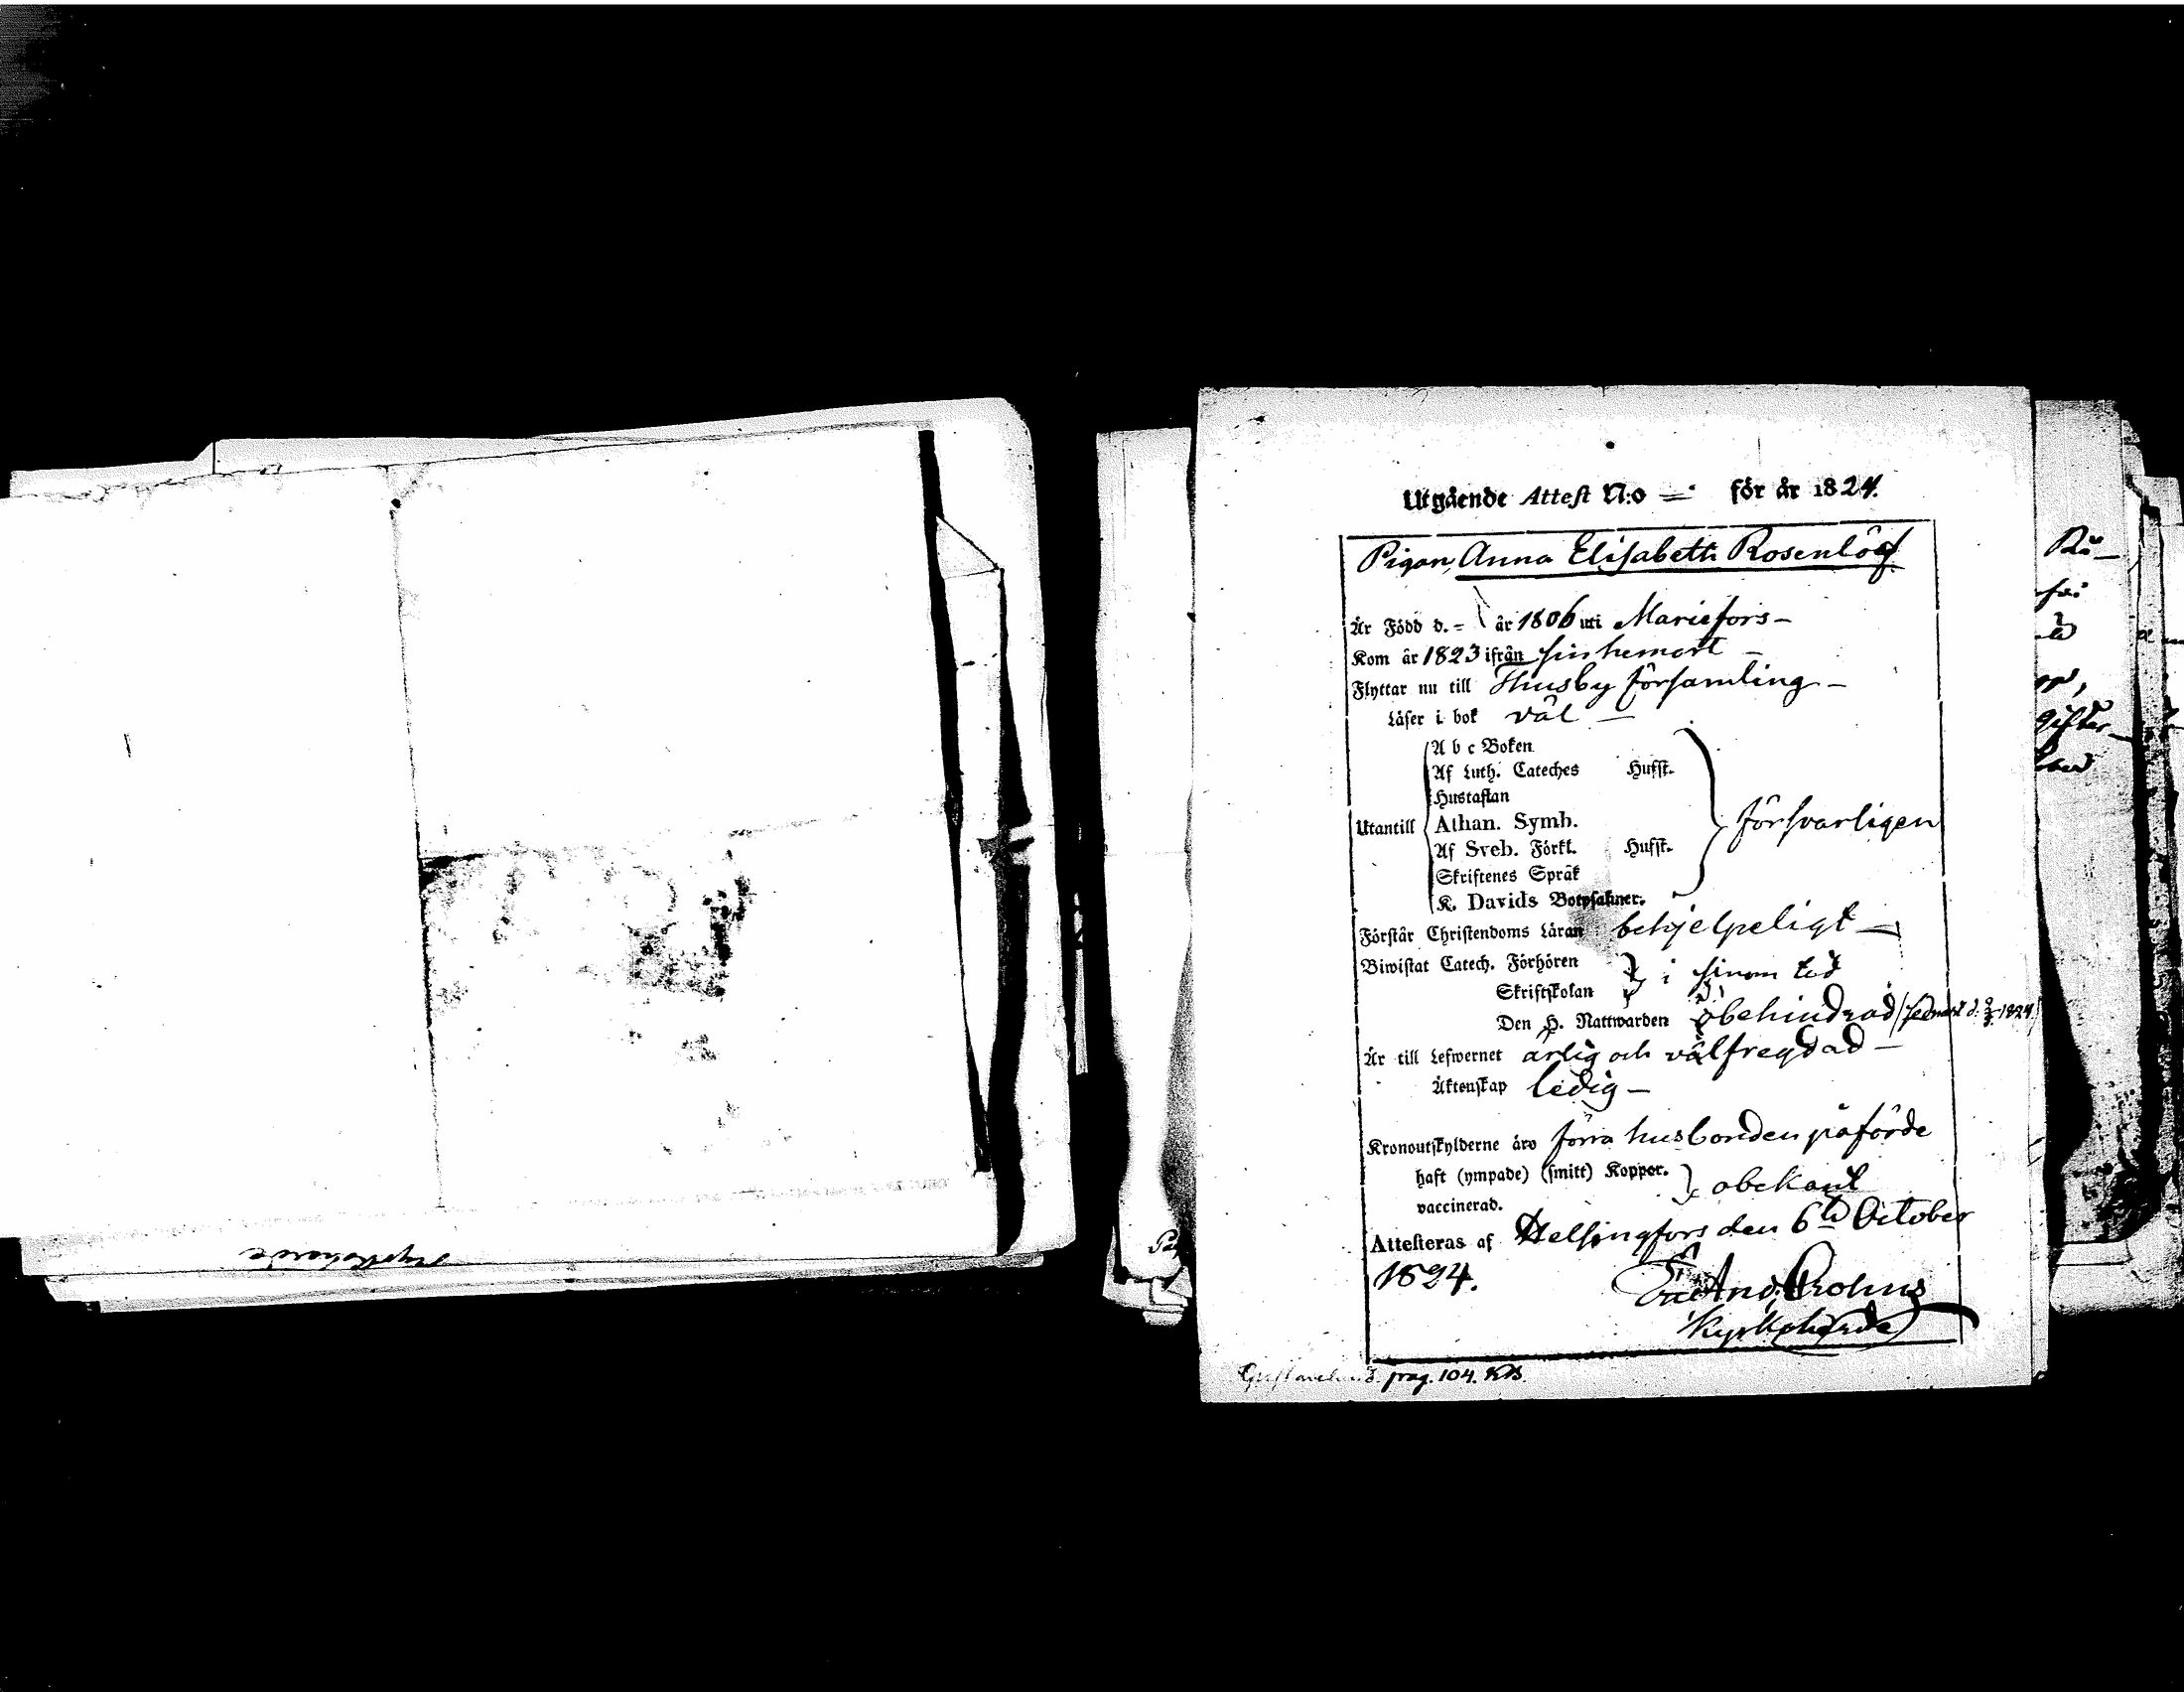 Utgående Attest N:o — för år 1824.
Pigan Anna Elisabeth Rosenlöf
Är Född d. = år 1806 uti Mariefors —
Kom år 1823 ifrån sin hemort —
Flyttar nu till Thusby församling —
Läser i bok väl —
A b c Boken
Af Luth. Cateches Hufst.
Hustaflan
Utantill Athan. Symb. försvarligen
Af Sveb. Förkl. Hufst.
Skriftenes Språk
K. Davids Botpsalmer.
Förstår Christendoms Läran behjelpeligt —
Biwistat Catech. Förhören i sinom tid
Skriftskolan
Den H. Nattwarden obehindrad (sednast d. 1824)
Är till Lefwernet ärlig och välfregdad —
Äktenskap ledig —
Kronoutskylderne äro förra husbonden påförde
haft (ympade) (smitt) Koppor. obekant
vaccinerad.
Attesteras af Helsingfors den 6te October
1824.
And:
Kyrkoherde
pag. 104. KB.
Kyrkoherde
Rå—
giftas